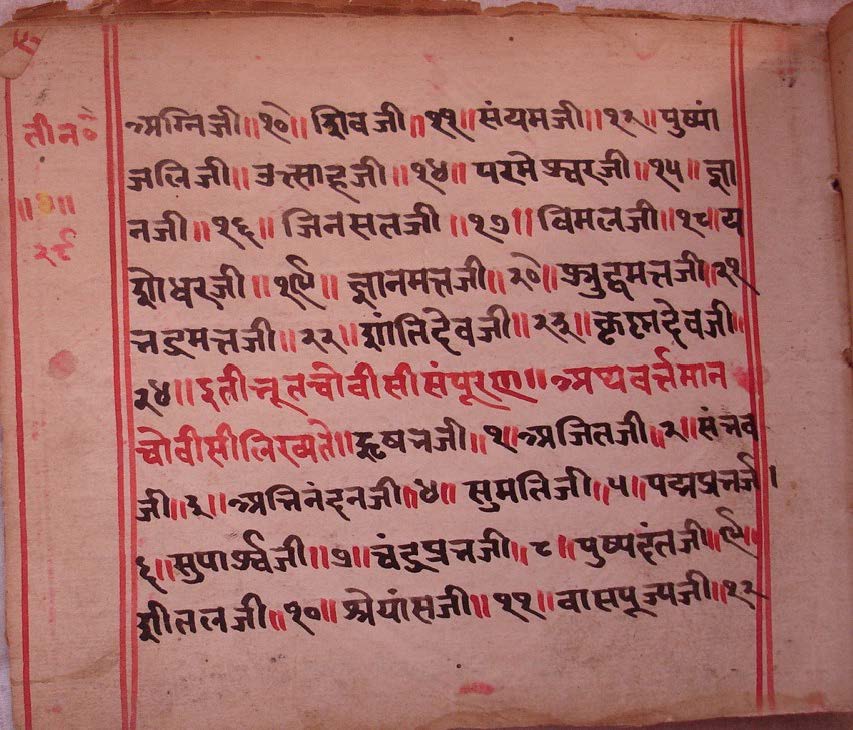 तीन०
॥७॥
२९
अग्निजी॥१०॥ शिवजी॥११॥संयमजी॥१२॥पुष्पां
जलिजी॥उत्साहजी॥१४॥ परमेश्वरजी॥१५॥ज्ञा
नजी॥१६॥ जिनसतजी॥१७॥विमलजी॥१८॥य
शोधरजी॥१९॥ ज्ञानमतजी॥२०॥श्रुद्धमतजी॥२१
भद्रमतजी॥२२॥शांतिदेवजी॥२३॥कृष्णदेवजी॥
२४॥इतीभूतचोवीसीसंपूरण॥अथवर्त्तमान
चोवीसीलिख्यते॥ऋषभजी॥१॥अजितजी॥२॥संभव
जी॥३॥अभिनंदनजी॥४॥ सुमतिजी॥५॥पद्मप्रभजी।
६॥सुपार्श्वजी॥७॥चंद्रप्रभजी॥८॥पुष्पदंतजी॥९॥
शीतलजी॥१०॥श्रेयांसजी॥११॥वासपूज्यजी॥१२